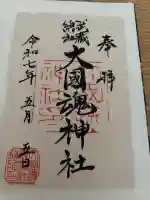 奉拝
武蔵
總社
大國魂神社
令和七年 五月 五日